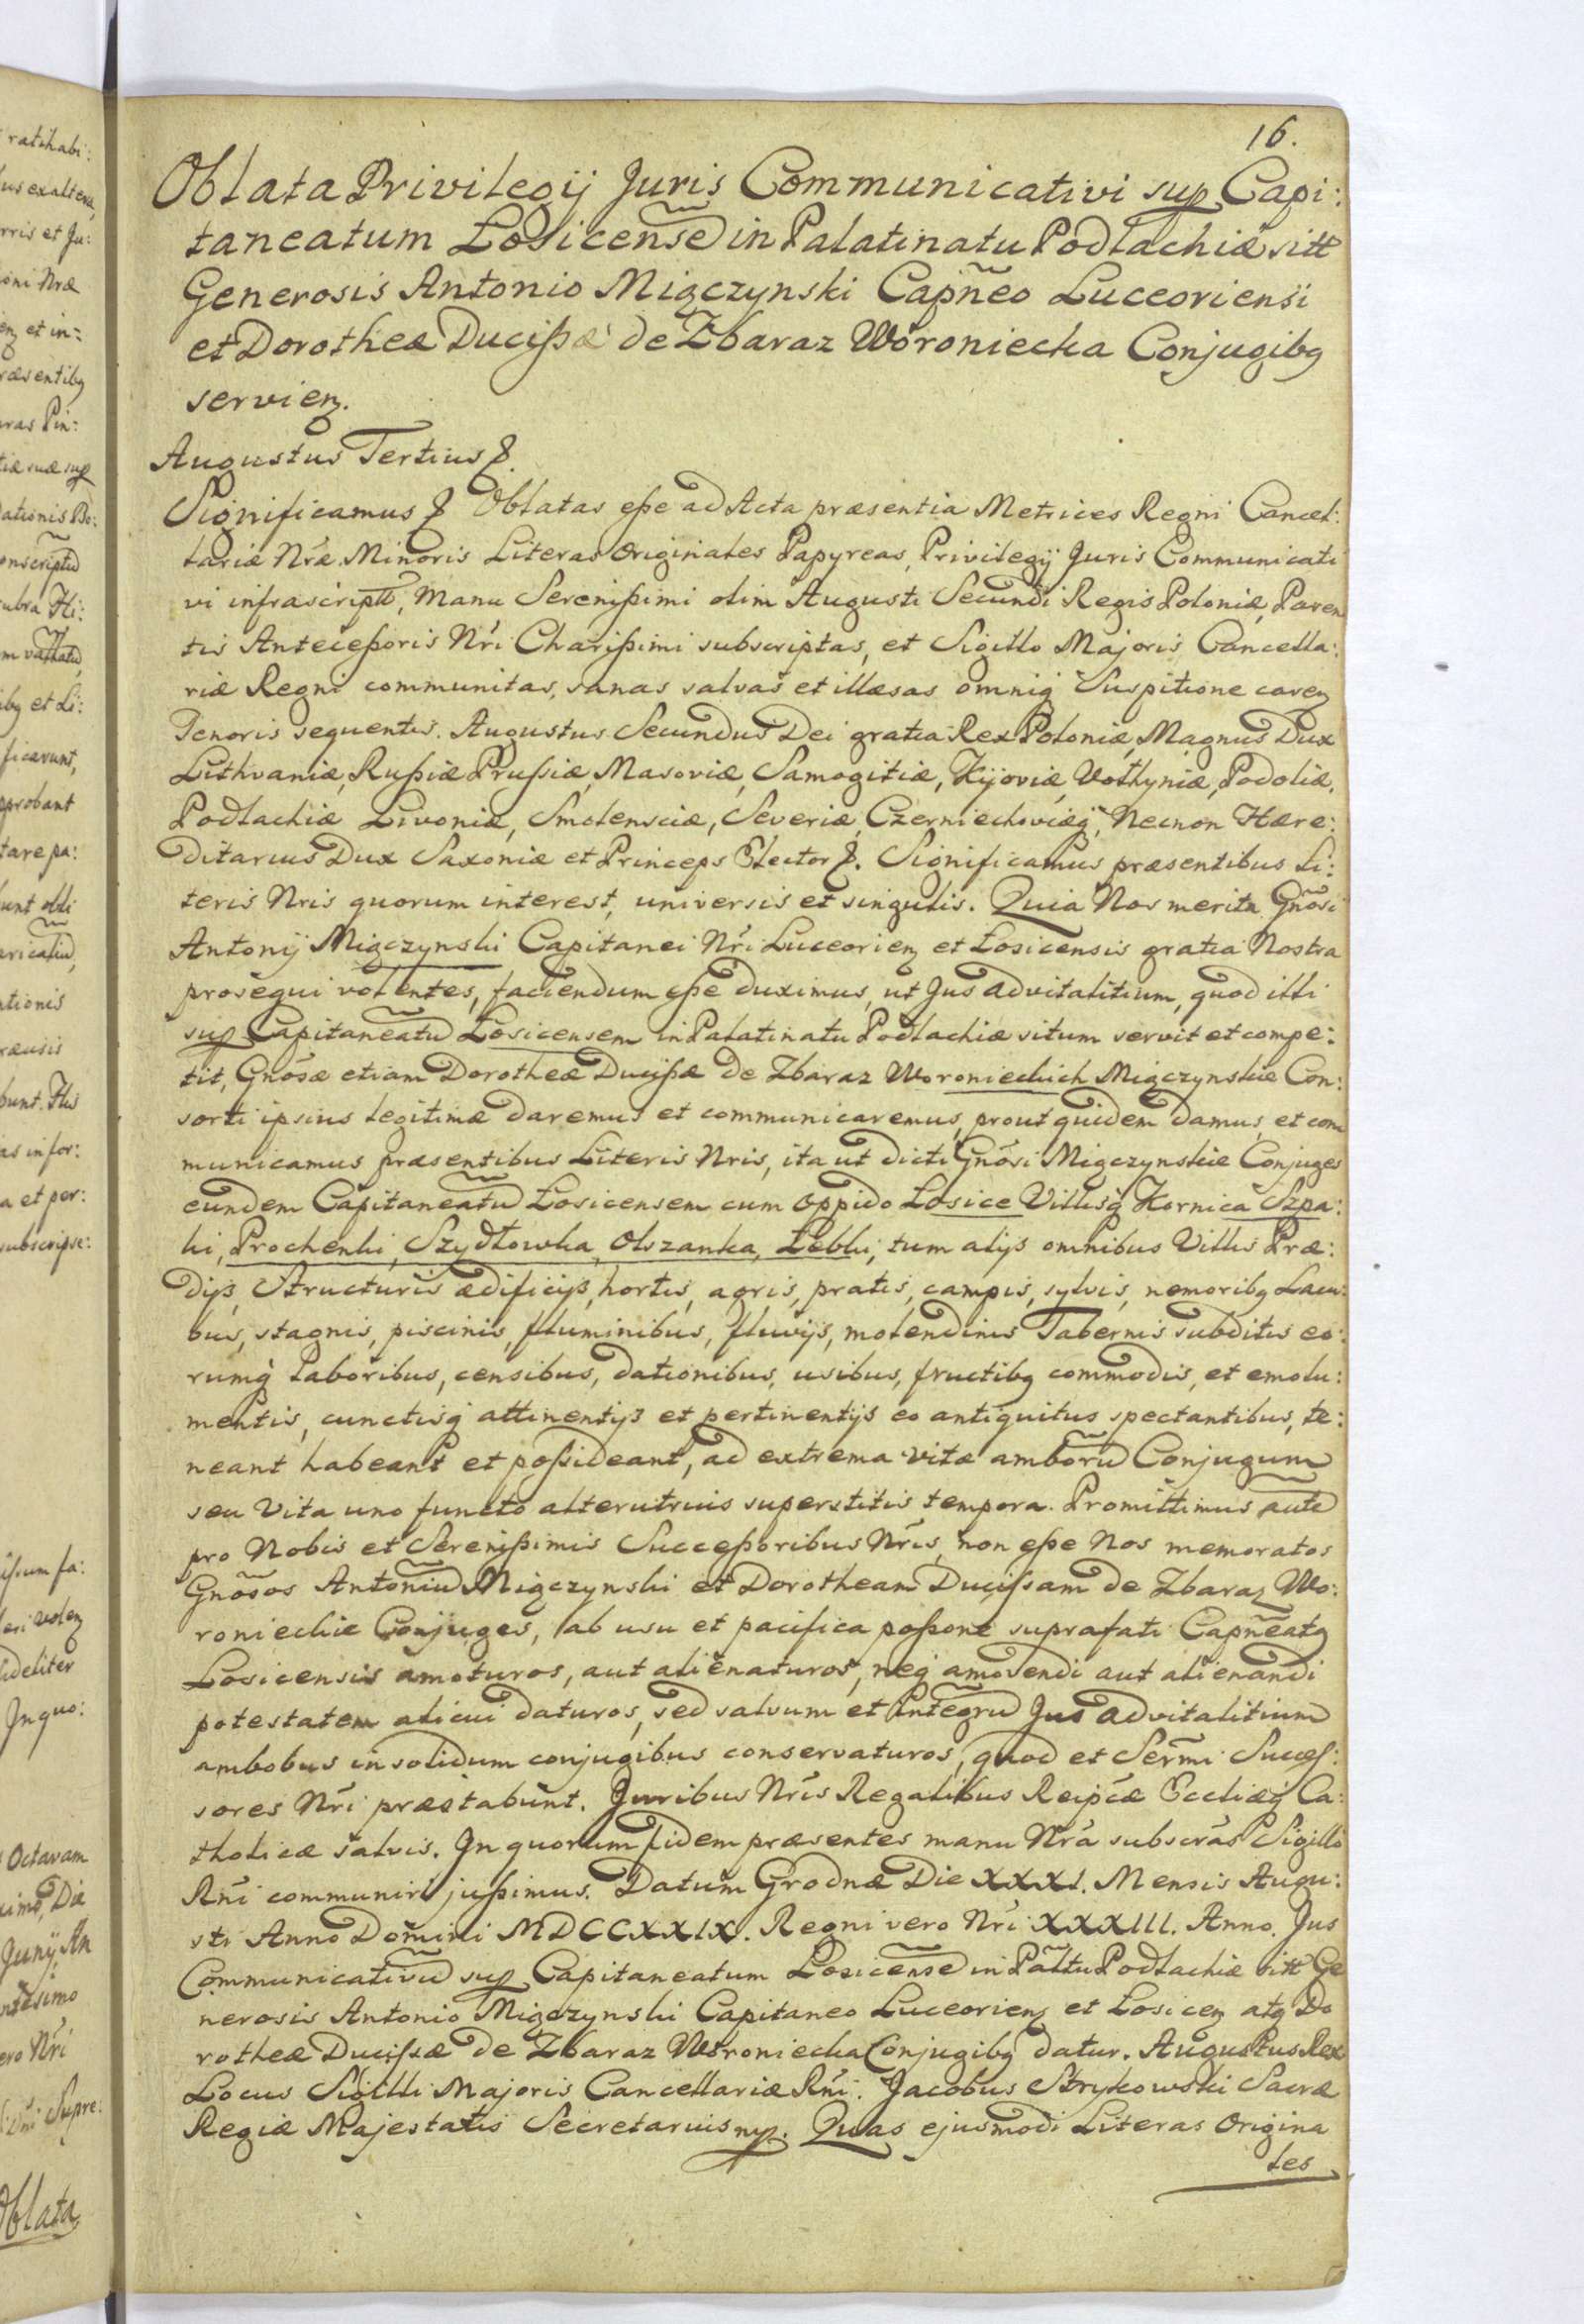 16.
Oblata Privilegij Juris Communicativi sup Capi:
taneatum Łosicense in Palatinatu Podlachiæ sitt
Generosis Antonio Miączynski Capñeo Luceoriensi
et Dorotheæ Ducißæ de Zbaraz Woroniecka Conjugibq
servieɳ.
Augustus Tertius &.
Significamus & Oblatas eße ad Acta præsentia Metrices Regni Cancel:
lariæ Nræ Minoris Literas Originales Papyreas, Privilegij Juris Communicati
vi infrascriptt, Manu Serenißimi olim Augusti Secundi Regis Poloniæ, Paren
tis Anteceßoris Nri Charißimi subscriptas, et Sigillo Majoris Cancella:
riæ Regni communitas, sanas salvas et illæsas omniq Suspitione careɳ
Tenoris sequentis. Augustus Secundus Dei gratia Rex Poloniæ, Magnus Dux
Lithvaniæ, Rußiæ Prußiæ, Masoviæ, Samogitiæ, Kijoviæ, Volhyniæ, Podoliæ,
Podlachiæ Livoniæ, Smolensciæ, Severiæ, Czerniechoviæq, Necnon Hære:
ditarius Dux Saxoniæ et Princeps Elector &. Significamus præsentibus Li:
teris Nris quorum interest, universis et singulis. Quia Nos merita Gnõsi
Antonij Miączynski Capitanei Nri Luceorieɳ et Łosicensis gratia Nostra
prosequi volentes, faciendum eße duximus, ut Jus advitalitium, quod illi
sup Capitaneatũ Łosicensem in Palatinatu Podlachiæ situm servit et compe:
tit, Gnõsæ etiam Dorotheæ Ducißæ de Zbaraz Woronieckich Miączynskie Con:
sorti ipsius legitimæ daremus et communicaremus, prout quidem damus, et com
municamus præsentibus Literis Nris, ita ut dicti Gnõsi Miączynskie Conjuges
eundem Capitaneatũ Łosicensem cum oppido Łosice Villisq Kornica Szpa:
ki, Prochenki, Szydłowka, Olszanka, Łebki, tum alijs omnibus Villis Præ:
dijs, Structuris ædificijs, hortis, agris, pratis, campis, sylvis, nemoribq Lacu:
bus, stagnis, piscinis, fluminibus, fluvijs, molendinis Tabernis subditis eo:
rumq laboribus, censibus, dationibus, usibus, fructibq commodis, et emolu:
mentis, cunctisq attinentijs et pertinentijs eo antiquitus spectantibus, te:
neant habeant et poßideant, ad extrema vitæ amborũ Conjugum
seu Vita uno functo alterutrius superstitis tempora. Promittimus autẽ
pro Nobis et Serenißimis Succeßoribus Nris, non eße Nos memoratos
Gnõsos Antoniũ Miączynski et Dorotheam Ducißam de Zbaraz Wo:
roniechie Conjuges, ab usu et pacifica poßone suprafati Capñeatq
Łosicensis amoturos, aut alienaturos, neq amovendi aut alienandi
potestatem alicui daturos, sed salvum et integrũ Jus advitalitium
ambobus in solidum conjugibus conservaturos, quod et Sermi Succeß:
sores Nri præstabunt. Juribus Nris Regalibus Reipcæ Eccliæq Ca:
tholicæ salvis. In quorum fidem præsentes manu Nra subscras Sigillo
Rni communiri jußimus. Datum Grodnæ Die XXXI. Mensis Augu:
sti Anno Domini MDCCXXIX. Regni vero Nri XXXIII. Anno. Jus
Communicativũ sup Capitaneatum Łosicense in Palttu Podlachiæ sitt Ge
nerosis Antonio Miączynski Capitaneo Luceorieɳ et Łosiceɳ atq Do
rotheæ Ducißæ de Zbaraz Woroniecka Conjugibq datur. Augustus Rex
Locus Sigilli Majoris Cancellariæ Rni. Jacobus Strykowski Sacræ
Regiæ Majestatis Secretarius mp. Quas ejusmodi Literas Origina
les